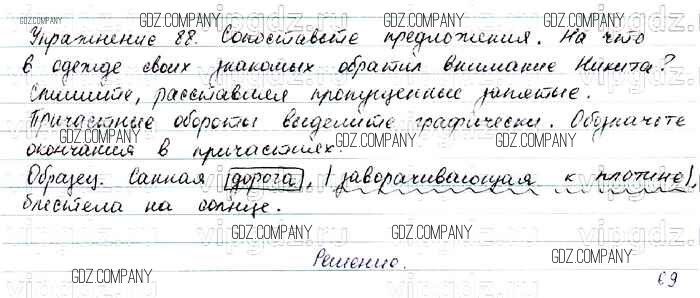 GDZ.COMPANY GDZ.COMPANY GDZ.COMPANY GDZ.COMPANY
Упражнение 88. Сопоставьте предложения. На что
в одежде своих знакомых обратил внимание Никита?
GDZ.COMPANY GDZ.COMPANY GDZ.COMPANY
Спишите, расставляя пропущенные запятые.
Причастные обороты выделите графически. Обозначьте
GDZ.COMPANY GDZ.COMPANY GDZ.COMPANY
окончания в причастиях.
Образец. Санная дорога, | заворачивающая к плотине|,
GDZ.COMPANY
блестела на солнце.
GDZ.COMPANY GDZ.COMPANY
GDZ.COMPANY
Решение.
69
GDZ.COMPANY